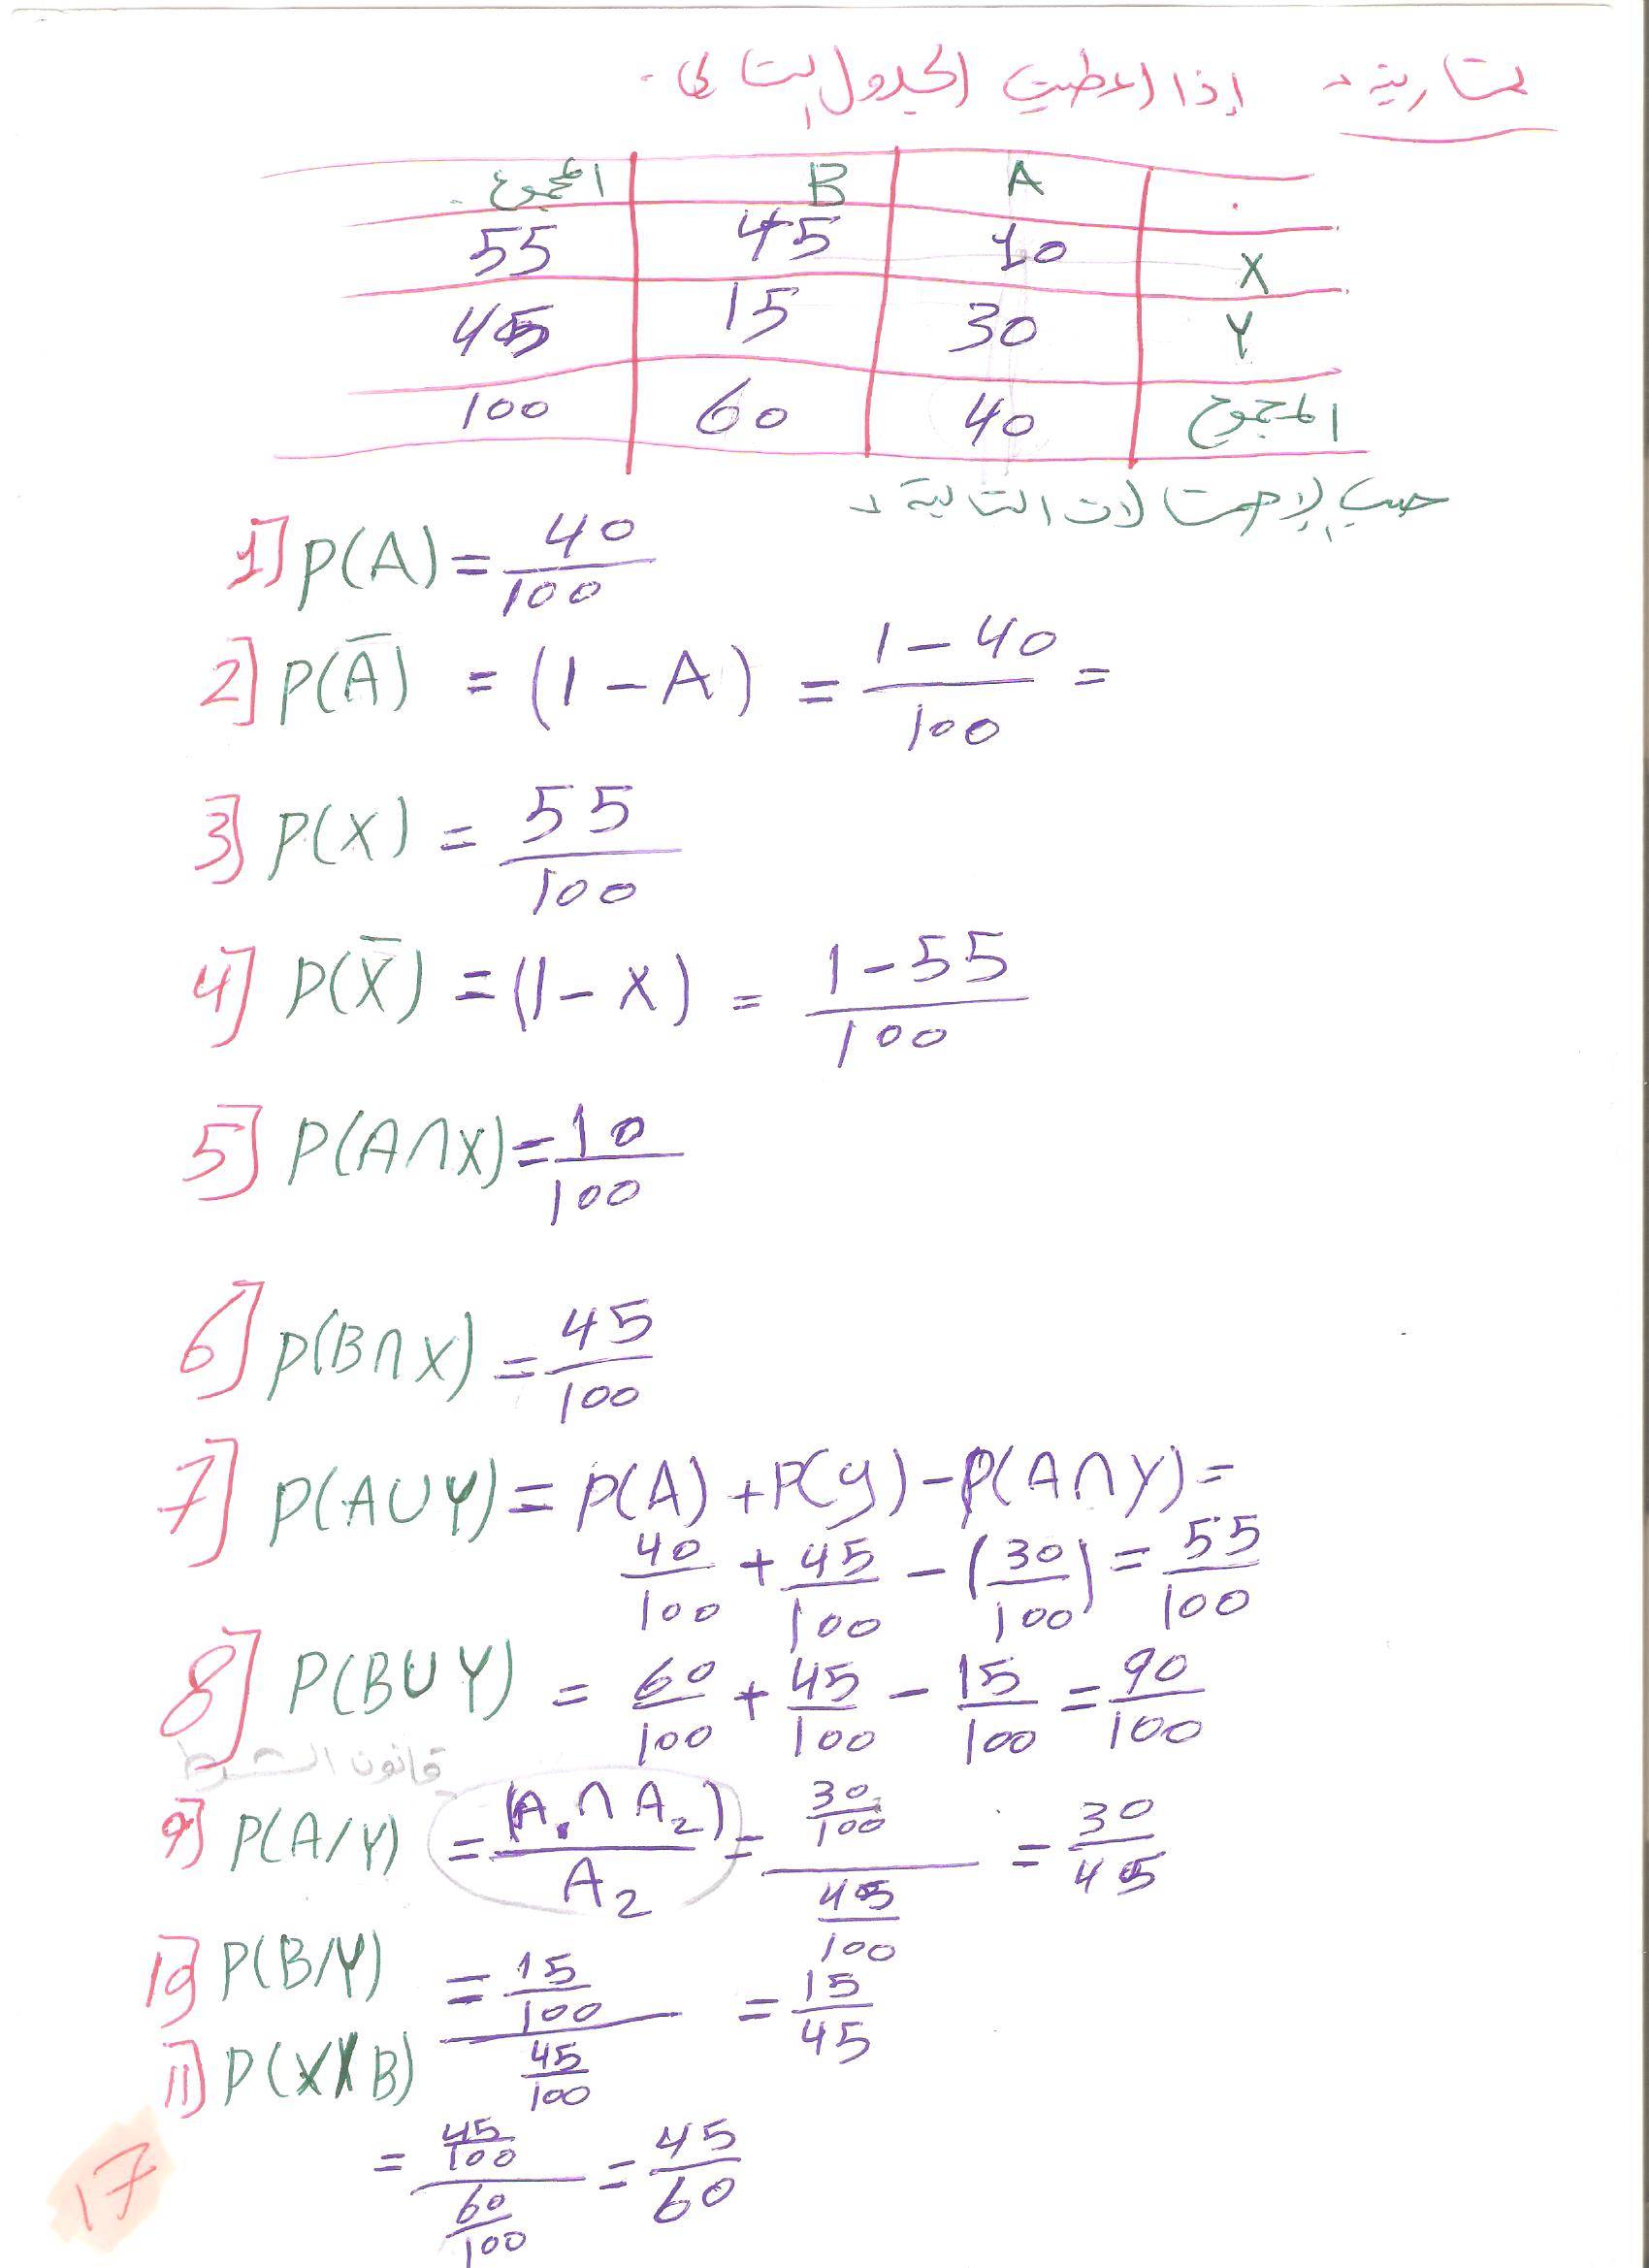 تمارين: إذا اعطيت الجدول التالي.
. A B المجموع.
X 10 45 55
Y 30 15 45
المجموع 40 60 100
حسب الاحتمالات التالية:
1] P(A) = 40/100
2] P(A̅) = (1 - A) = 1 - 40/100 =
3] P(X) = 55/100
4] P(X̅) = (1 - X) = 1 - 55/100
5] P(A∩X) = 10/100
6] P(B∩X) = 45/100
7] P(A∪Y) = P(A) + P(y) - P(A∩Y) =
40/100 + 45/100 - (30/100) = 55/100
8] P(B∪Y) = 60/100 + 45/100 - 15/100 = 90/100
قانون الشرط
9] P(A/Y) = (A₁∩A₂)/A₂ = 30/100 / 45/100 = 30/45
10] P(B/Y) = 15/100 / 45/100 = 15/45
11] P(X/B)
= 45/100 / 60/100 = 45/60
17